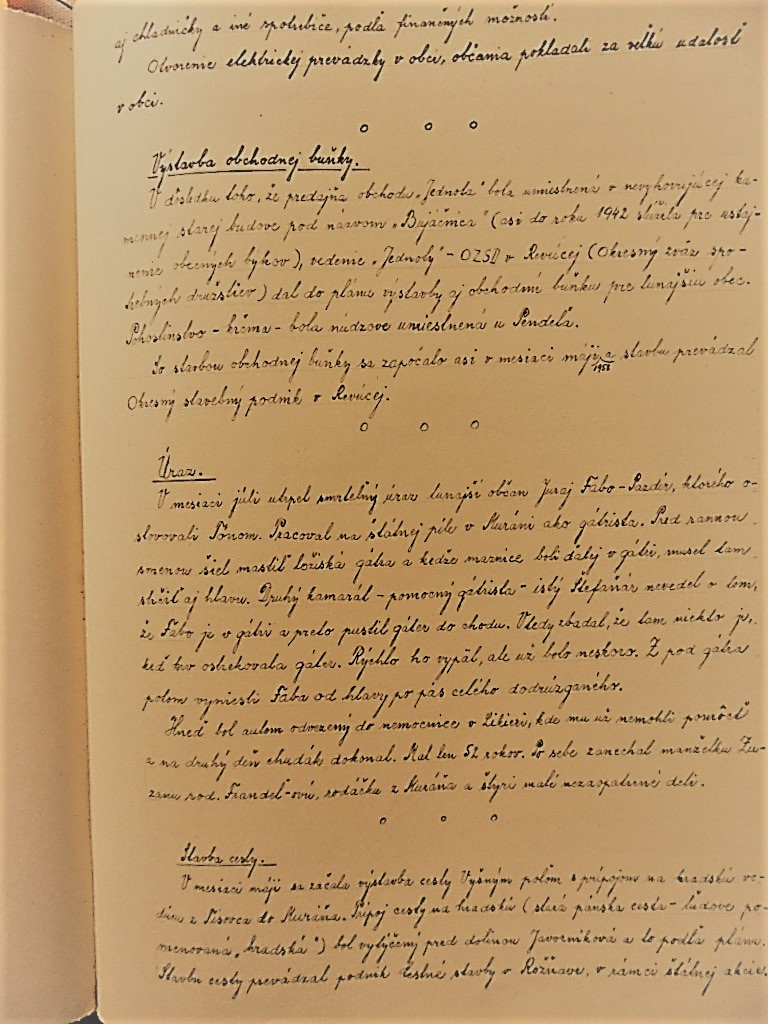 aj chladničky a iné spotrebiče, podľa finančných možností.
Otvorenie elektrickej prevádzky v obci, občania pokladali za veľkú udalosť
v obci.
o o o
Výstavba obchodnej buňky.
V dôsledku toho, že predajňa obchodu „Jednota" bola umiestnená v nevyhovujúcej ka-
mennej starej budove pod názvom „Bujáčnica" (asi do roku 1942 slúžila pre ustaj-
nenie obecných býkov), vedenie „Jednoty" - OZSD v Revúcej (Okresný zväz spo-
trebných družstiev) dal do plánu výstavby aj obchodnú buňku pre tunajšiu obec.
Pohostinstvo - krčma - bola núdzove umiestnená u Pendeľa.
So stavbou obchodnej buňky sa započalo asi v mesiaci máji 1958 a stavbu prevádzal
Okresný stavebný podnik v Revúcej.
o o o
Úraz.
V mesiaci júli utrpel smrteľný úraz tunajší občan Juraj Fabo-Pazdír, ktorého o-
slovovali Ďurom. Pracoval na štátnej píle v Muráni ako gátrista. Pred rannou
smenou šiel mastiť ložiská gátra a kedže maznice boli ďalej v gátri, musel tam
strčiť aj hlavu. Druhý kamarát - pomocný gátrista - istý Štefaňár nevedel o tom,
že Fabo je v gátri a preto pustil gáter do chodu. Vtedy zbadal, že tam niekto je,
keď krv ostrekovala gáter. Rýchlo ho vypäl, ale už bolo neskoro. Z pod gátra
potom vyniesli Faba od hlavy po pás celého dodrúzganého.
Hneď bol autom odvezený do nemocnice v Likieri, kde mu už nemohli pomôcť
a na druhý deň chudák dokonal. Mal len 52 rokov. Po sebe zanechal manželku Zu-
zanu rod. Frandeľ-ovú, rodáčku z Muráňa a štyri malé nezaopatrené deti.
o o o
Stavba cesty.
V mesiaci máji sa začala výstavba cesty Vyšným poľom s prípojom na hradskú ve-
dúcu z Tisovca do Muráňa. Prípoj cesty na hradskú (stará pánska cesta - ľudove po-
menovaná „hradská") bol vytýčený pred dolinou Javorníková a to podľa plánu.
Stavbu cesty prevádzal podnik Cestné stavby v Rožňave, v rámci štátnej akcie.